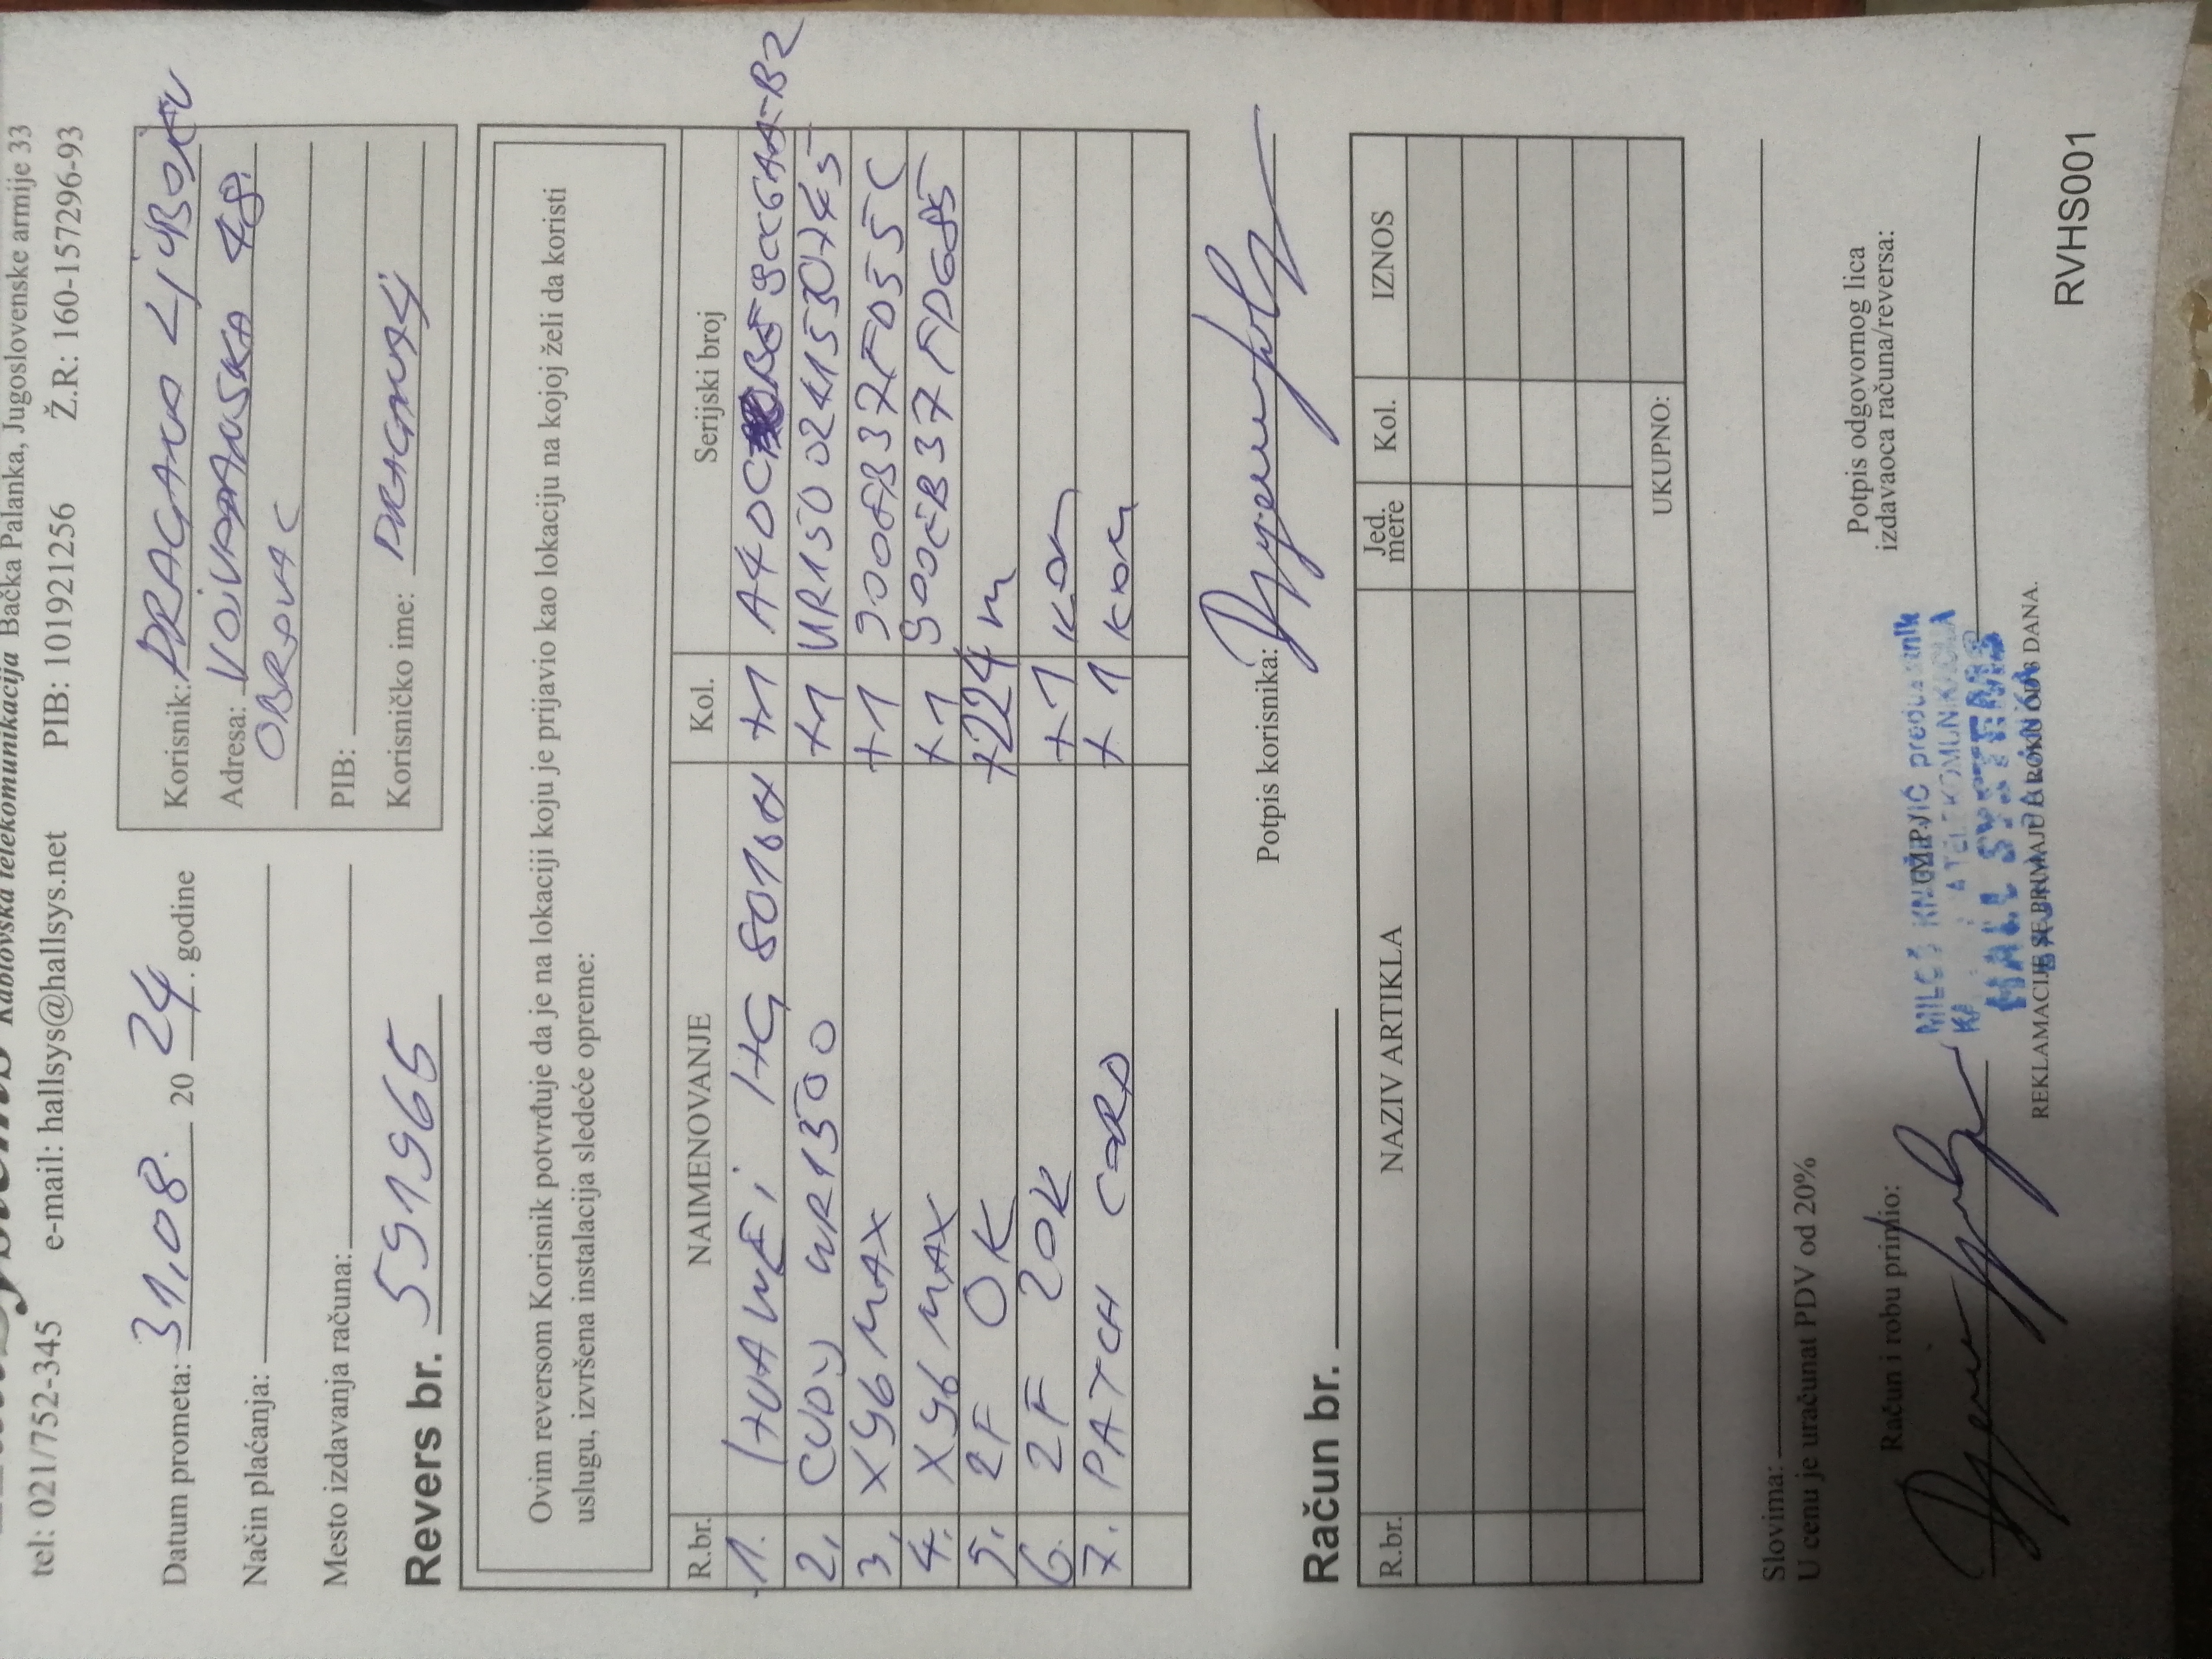 kablovska telekomunikacija Bačka Palanka, Jugoslovenske armije 33
tel: 021/752-345 e-mail: hallsys@hallsys.net PIB: 101921256 Ž.R.: 160-157296-93
Datum prometa: 31,08. 20 24. godine
Način plaćanja:
Mesto izdavanja računa:
Revers br. 591965
Korisnik: DRAGANA
Adresa: 48
OBROVAC
PIB:
Korisničko ime:
Ovim reversom Korisnik potvrđuje da je na lokaciji koju je prijavio kao lokaciju na kojoj želi da koristi
uslugu, izvršena instalacija sledeće opreme:
R.br. NAIMENOVANJE Kol. Serijski broj
1. HUAWEi HG 8010H +1
2, CUDY WR1300 +1
3, X96 MAX +1
4, X96 MAX +1
5, 2F OK +224 m
6. 2F 20K +1 kom
7. PATCH CORD +1 kom
Potpis korisnika:
Račun br.
R.br. NAZIV ARTIKLA Jed. mere Kol. IZNOS
UKUPNO:
Slovima:
U cenu je uračunat PDV od 20%
Račun i robu primio:
(M.P.)
Potpis odgovornog lica
izdavaoca računa/reversa:
HALL SYSTEMS
REKLAMACIJE SE PRIMAJU U ROKU OD 8 DANA.
RVHS001